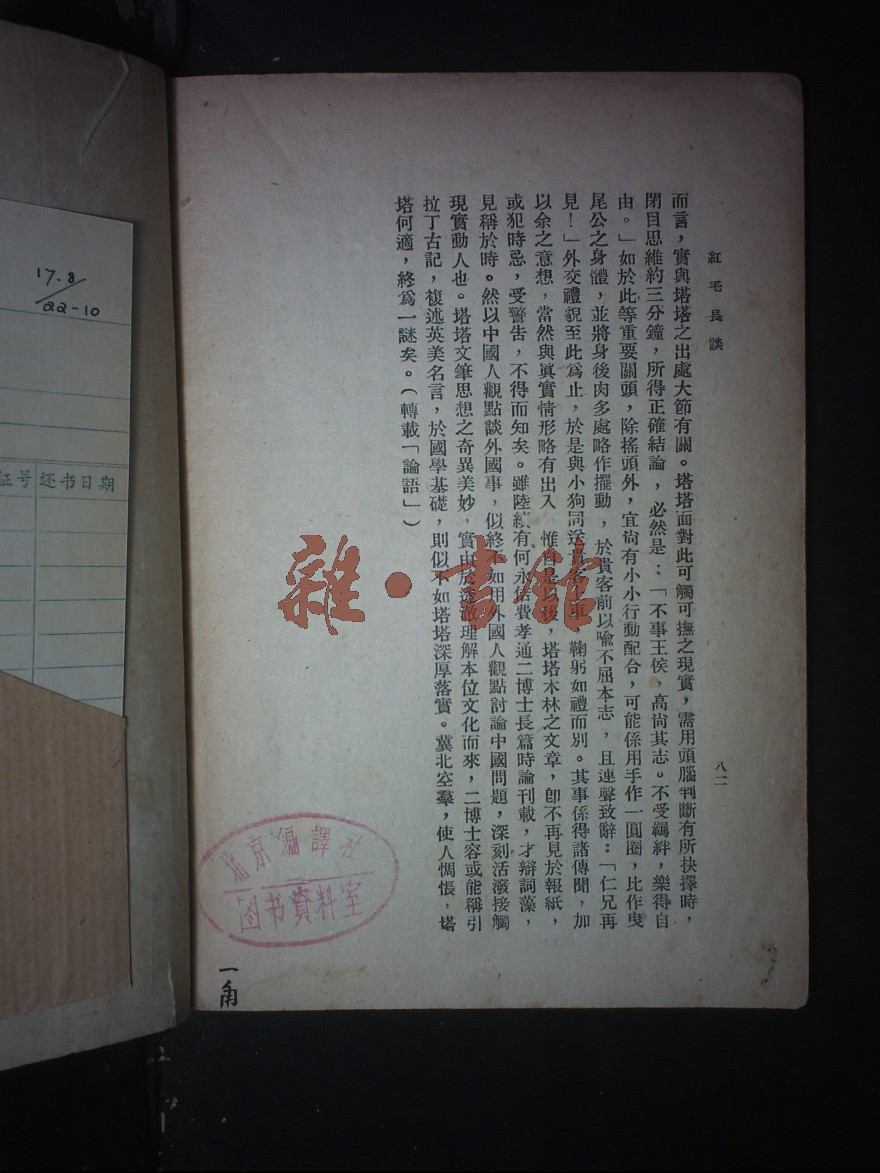 紅毛長談
八二
而言，實與塔塔之出處大節有關。塔塔面對此可觸可撫之現實，需用頭腦判斷有所抉擇時，
閉目思維約三分鐘，所得正確結論，必然是：「不事王侯，高尚其志。不受羈絆，樂得自
由。」如於此等重要關頭，除搖頭外，宜尙有小小行動配合，可能係用手作一圓圈，比作曳
尾公之身體，並將身後肉多處略作擺動，於貴客前以喩不屈本志，且連聲致辭：「仁兄再
見！」外交禮貌至此爲止，於是與小狗同送貴客上車，鞠躬如禮而別。其事係得諸傳聞，加
以余之意想，當然與眞實情形略有出入，惟自是以後，塔塔木林之文章，卽不再見於報紙，
或犯時忌，受警告，不得而知矣。雖陸續有何永佶費孝通二博士長篇時論刊載，才辯詞藻，
見稱於時。然以中國人觀點談外國事，似終不如用外國人觀點討論中國問題，深刻活潑接觸
現實動人也。塔塔文筆思想之奇異美妙，實由於透澈理解本位文化而來，二博士容或能稱引
拉丁古記，複述英美名言，於國學基礎，則似不如塔塔深厚落實。冀北空羣，使人惆悵，塔
塔何適，終爲一謎矣。（轉載「論語」）
雜·書館
北京編譯社
図书資料室
一角
17.8/22-10
证号 还书日期